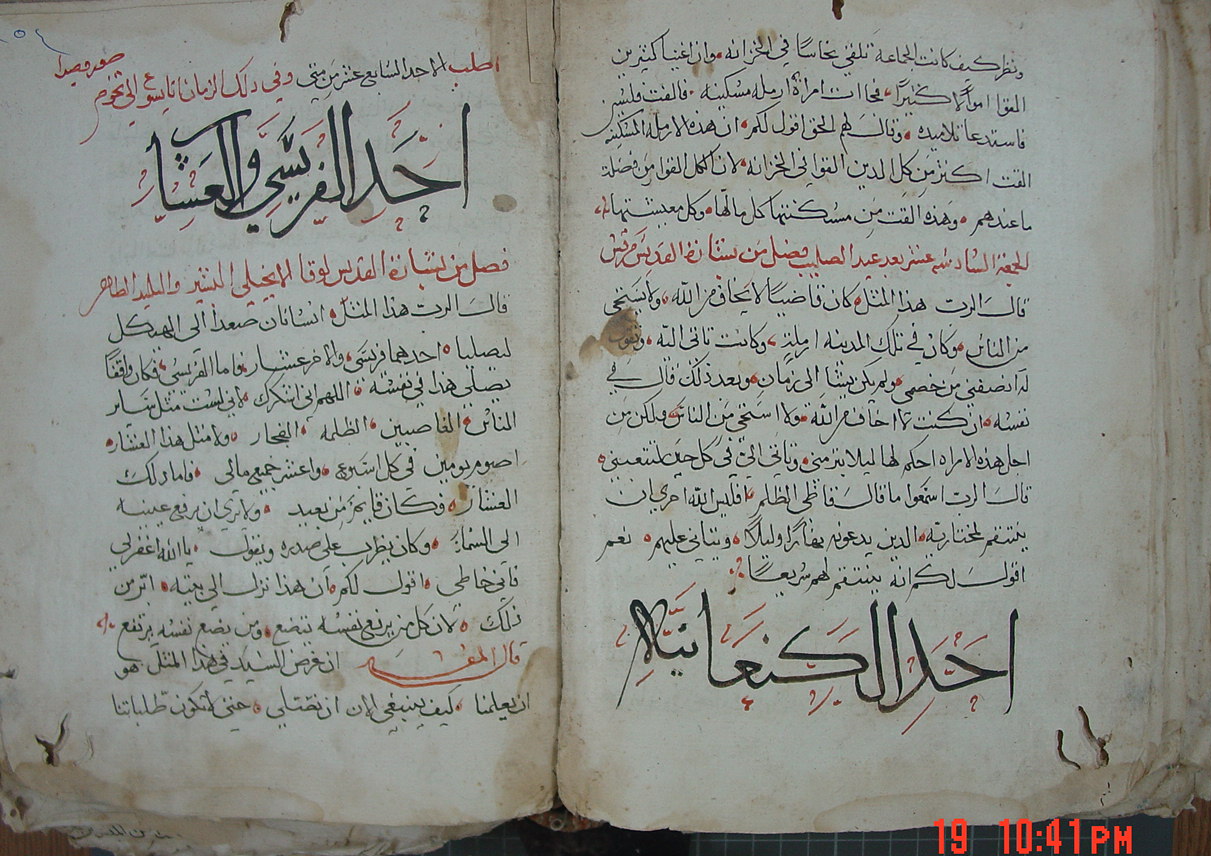 ونظر كيف كانت الجماعه تلقي نحاسًا في الخزانه وان اغنيا كثيرين
القوا اموالًا كثيرًا فجاات امراة ارمله مسكينه فالقت فلسين
فاستدعا تلاميده وقال لهم الحق اقول لكم ان هذه الارمله المسكينه
القت اكثر من كل الدين القوا في الخزانه لان الكل القوا من فضلة
ما عندهم وهذه القت من مسكنتها كل مالها وكل معيشتها
الجمعه السادسه عشر بعد عيد الصليب فصل من بشارة القديس مرقس
قال الرب هذا المثل كان قاضيًا لا يخاف من الله ولا يستحي
من الناس وكان في تلك المدينه ارمله وكانت تاتي اليه وتقول
له انصفني من خصمي ولم يكن يشا الى زمان وبعد ذلك قال في
نفسه ان كنت لا اخاف من الله ولا استحي من الناس ولكن من
اجل هذه الامراه احكم لها ليلا تبرمني وتاتي اليّ في كل حين لتتعبني
قال الرب اسمعوا ما قال قاضي الظلم افليس الله احرى ان
ينتقم لمختاريه الدين يدعونه نهارًا وليلًا ويتانى عليهم نعم
اقول لكم انه ينتقم لهم سريعًا
احد الكنعانيّه
اطلب الاحد السابع عشر من متي وفي دلك الزمان اتا يسوع الي تخوم
صور وصيدا
احد الفريسّي والعشار
فصل من بشارة القديس لوقا الانجيلي البشير والتلميد الطاهر
قال الرب هذا المثل انسانان صعدا الي الهيكل
ليصليا احدهما فريسي والاخر عشار فاما الفريسي فكان واقفًا
يصلي هذا في نفسه اللهم اني اشكرك لاني لست مثل ساير
الناس الغاصبين الظلمه الفجار ولا مثل هذا العشار
اصوم يومين في كل اسبوع واعشر جميع مالي فاما دلك
العشار فكان قايم من بعيد ولا يرى ان يرفع عينيه
الي السماء وكان يظرب على صدره ويقول يا الله اغفر لي
فاني خاطي اقول لكم ان هذا نزل الي بيته ابر من
ذلك لان كل من يرفع نفسه يتضع ومن يضع نفسه يرتفع
قال المفسر ان غرض السيد في هذا المثل هو
ان يعلمنا كيف ينبغي لان حتي لتكون طلباتنا
19 10:41PM